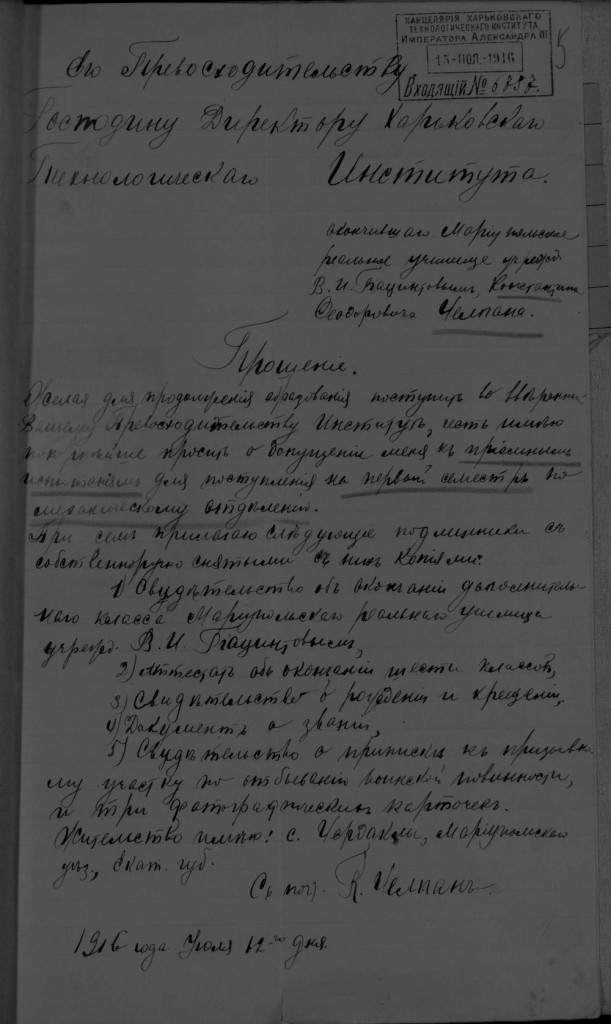 КАНЦЕЛЯРІЯ ХАРЬКОВСКАГО
ТЕХНОЛОГИЧЕСКАГО ИНСТИТУТА
ИМПЕРАТОРА АЛЕКСАНДРА III
15-ІЮЛ.-1916
Входящій № 6757.
5
Его Превосходительству
Господину Директору Харьковскаго
Технологическаго Института.
окончившаго Маріупольское
реальное училище учрежд.
В. И. Гіацинтовымъ, Константина
Феодоровича Челпана.
Прошеніе.
Желая для продолженія образованія поступить во ввѣренный
Вашему Превосходительству Институтъ, честь имѣю
покорнѣйше просить о допущеніи меня къ пріемнымъ
испытаніямъ для поступленія на первый семестръ по
механическому отдѣленію.
При семъ прилагаю слѣдующіе подлинники съ
собственноручно снятыми съ нихъ копіями:
1) Свидѣтельство объ окончаніи дополнитель-
наго класса Маріупольскаго реальнаго училища
учрежд. В. И. Гіацинтовымъ,
2) Аттестатъ объ окончаніи шести классовъ,
3) Свидѣтельство о рожденіи и крещеніи,
4) Документъ о званіи,
5) Свидѣтельство о припискѣ къ призывно-
му участку по отбыванію воинской повинности,
и три фотографическихъ карточекъ.
Жительство имѣю: с. Чердаклы, Маріупольскаго
уѣз., Екат. губ.
Съ поч. К. Челпанъ.
1916 года Іюля 12-го дня.